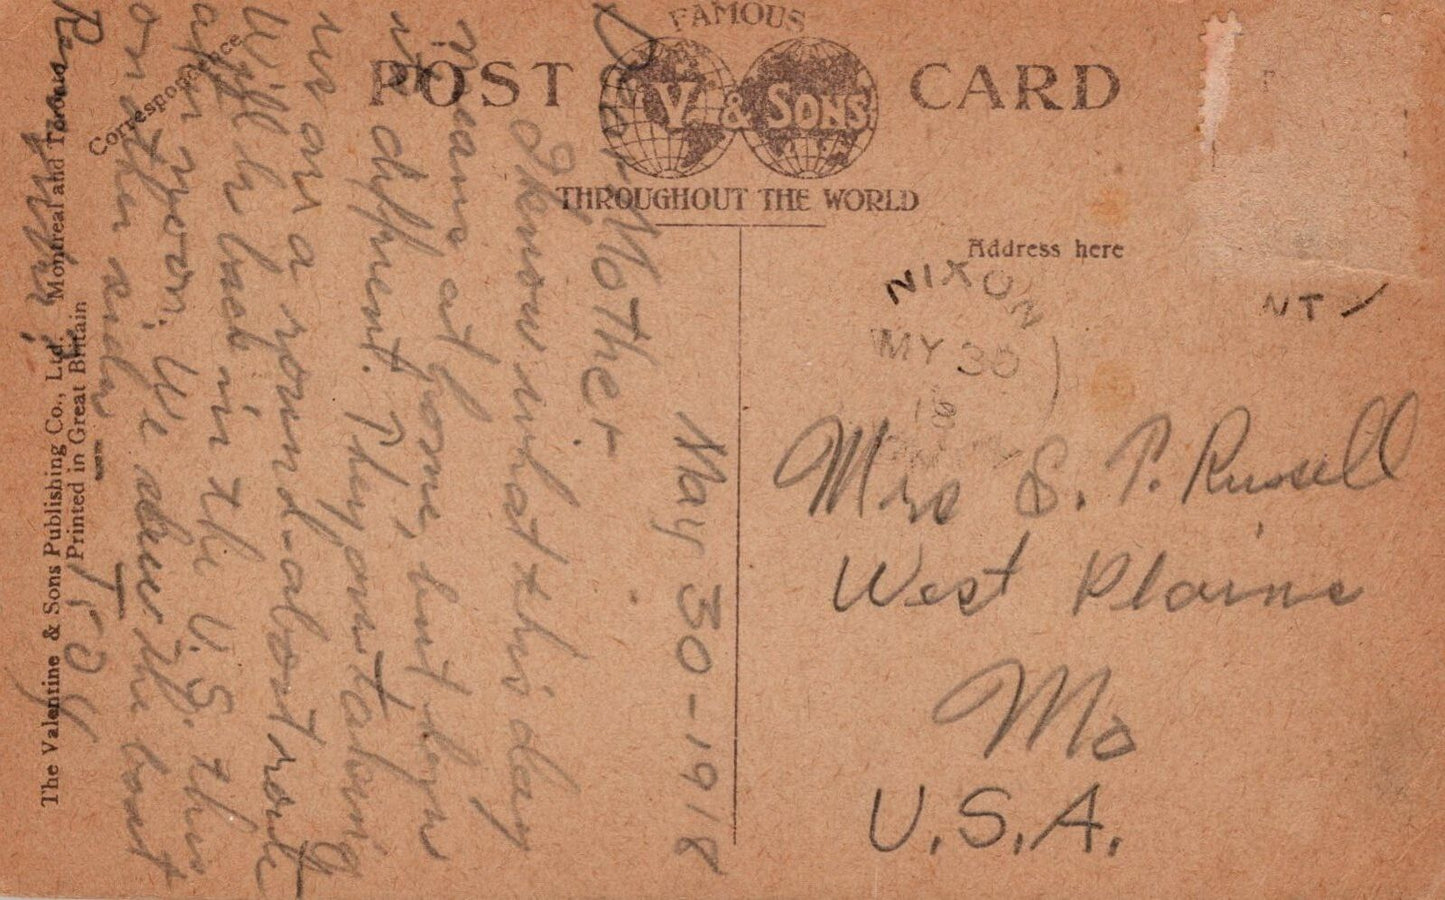 FAMOUS
POST CARD
V & SONS
THROUGHOUT THE WORLD
Correspondence
Address here
NIXON
MY 30
18
NT
Mrs S. P. Russell
West Plains
Mo
U.S.A.
May 30-1918
Dear Mother
I know what this day
means at home, but here
its different. They are taking
us on a round-about route
Will be back in the U.S. this
afternoon. We adrew the boat
on the
The Valentine & Sons Publishing Co., Ltd. Montreal and Toronto
Printed in Great Britain